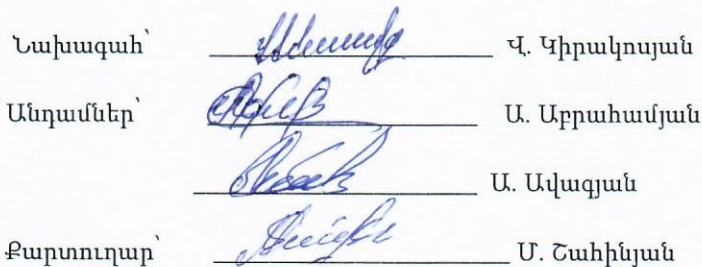 Նախագահ՝ Վ. Կիրակոսյան
Անդամներ՝ Ա. Աբրահամյան
Ա. Ավագյան
Քարտուղար՝ Մ. Շահինյան